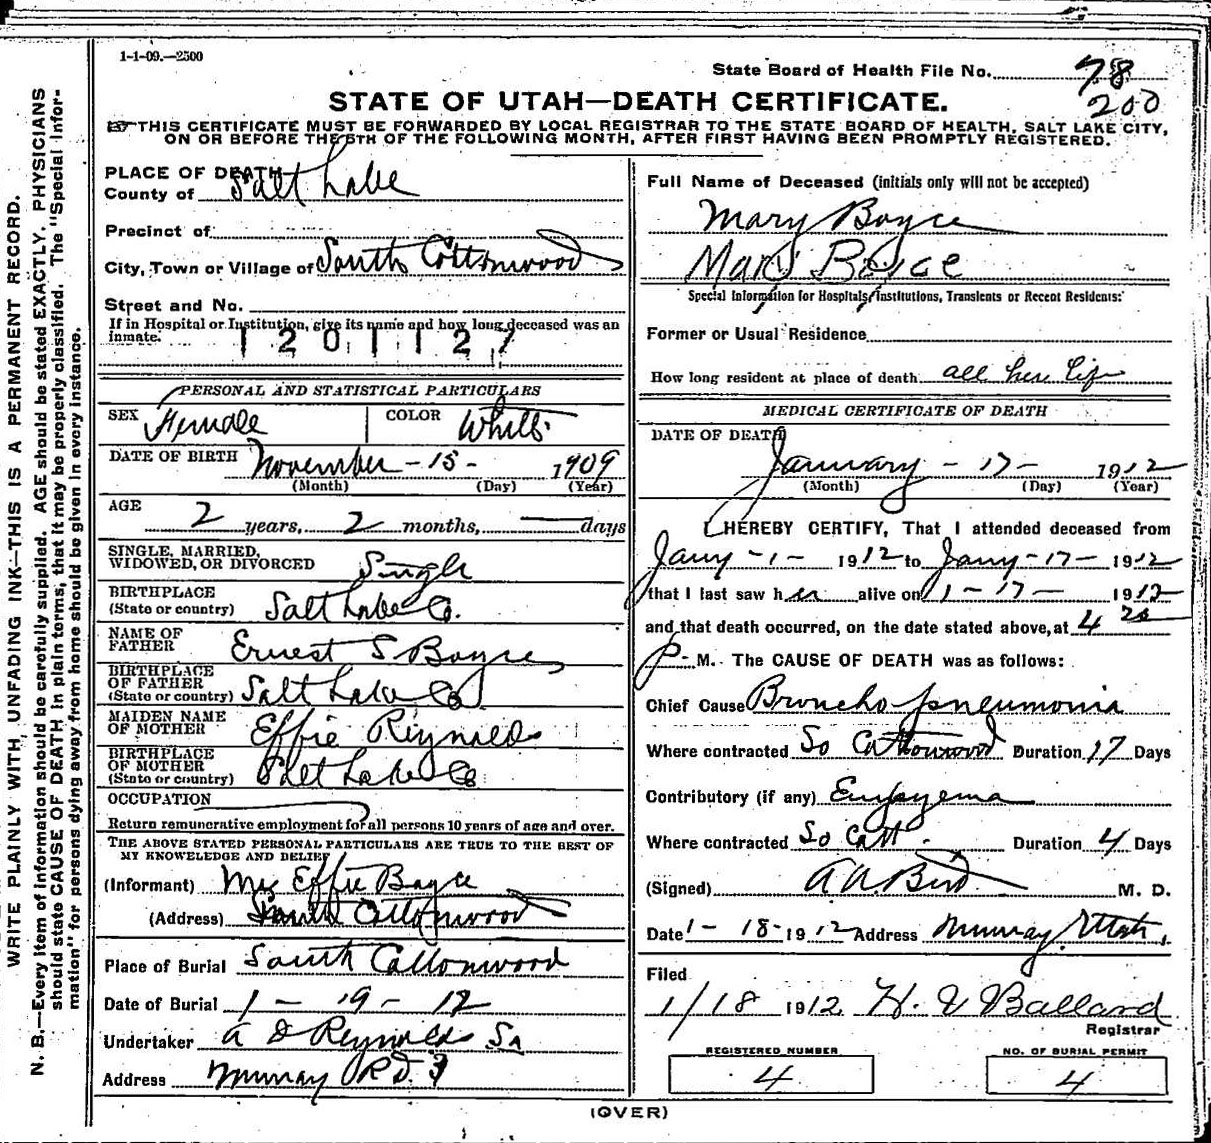 1-1-09.—2500
State Board of Health File No. 78
200
STATE OF UTAH—DEATH CERTIFICATE.
THIS CERTIFICATE MUST BE FORWARDED BY LOCAL REGISTRAR TO THE STATE BOARD OF HEALTH, SALT LAKE CITY,
ON OR BEFORE THE 5TH OF THE FOLLOWING MONTH, AFTER FIRST HAVING BEEN PROMPTLY REGISTERED.
WRITE PLAINLY WITH UNFADING INK—THIS IS A PERMANENT RECORD.
N. B.—Every item of information should be carefully supplied. AGE should be stated EXACTLY. PHYSICIANS
should state CAUSE OF DEATH in plain terms, that it may be properly classified. The "Special Infor-
mation" for persons dying away from home should be given in every instance.
PLACE OF DEATH
County of Salt Lake
Precinct of
City, Town or Village of South Cottonwood
Street and No.
If in Hospital or Institution, give its name and how long deceased was an
inmate.
1201127
PERSONAL AND STATISTICAL PARTICULARS
SEX Female COLOR White
DATE OF BIRTH November - 15 - 1909
(Month) (Day) (Year)
AGE
2 years, 2 months, — days
SINGLE, MARRIED,
WIDOWED, OR DIVORCED Single
BIRTHPLACE
(State or country) Salt Lake Co.
NAME OF
FATHER Ernest S Boyce
BIRTHPLACE
OF FATHER
(State or country) Salt Lake Co
MAIDEN NAME
OF MOTHER Effie Reynolds
BIRTHPLACE
OF MOTHER
(State or country) Salt Lake Co
OCCUPATION
Return remunerative employment for all persons 10 years of age and over.
THE ABOVE STATED PERSONAL PARTICULARS ARE TRUE TO THE BEST OF
MY KNOWLEDGE AND BELIEF
(Informant) Mrs Effie Boyce
(Address) South Cottonwood
Place of Burial South Cottonwood
Date of Burial 1 - 19 - 12
Undertaker A D Reynolds Sr
Address Murray R D 3
Full Name of Deceased (initials only will not be accepted)
Mary Boyce
Mary Boyce
Special Information for Hospitals, Institutions, Transients or Recent Residents:
Former or Usual Residence
How long resident at place of death all her life
MEDICAL CERTIFICATE OF DEATH
DATE OF DEATH
January - 17 - 1912
(Month) (Day) (Year)
I HEREBY CERTIFY, That I attended deceased from
Jany - 1 - 1912 to Jany - 17 - 1912
that I last saw her alive on 1 - 17 - 1912
and that death occurred, on the date stated above, at 4 20
P M. The CAUSE OF DEATH was as follows:
Chief Cause Broncho pneumonia
Where contracted So Cottonwood Duration 17 Days
Contributory (if any) Empyema
Where contracted So Cott. Duration 4 Days
(Signed) A A Bird M. D.
Date 1 - 18 - 1912 Address Murray, Utah.
Filed
1/18 1912, H. V Ballard
Registrar
REGISTERED NUMBER
4
NO. OF BURIAL PERMIT
4
(OVER)